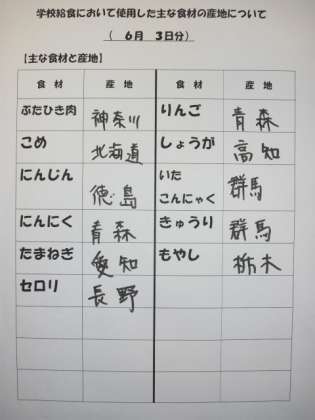 学校給食において使用した主な食材の産地について
( 6月 3日分)
【主な食材と産地】
食 材 産 地 食 材 産 地
ぶたひき肉 神奈川 りんご 青森
こめ 北海道 しょうが 高知
にんじん 徳島 いたこんにゃく 群馬
にんにく 青森 きゅうり 群馬
たまねぎ 愛知 もやし 栃木
セロリ 長野